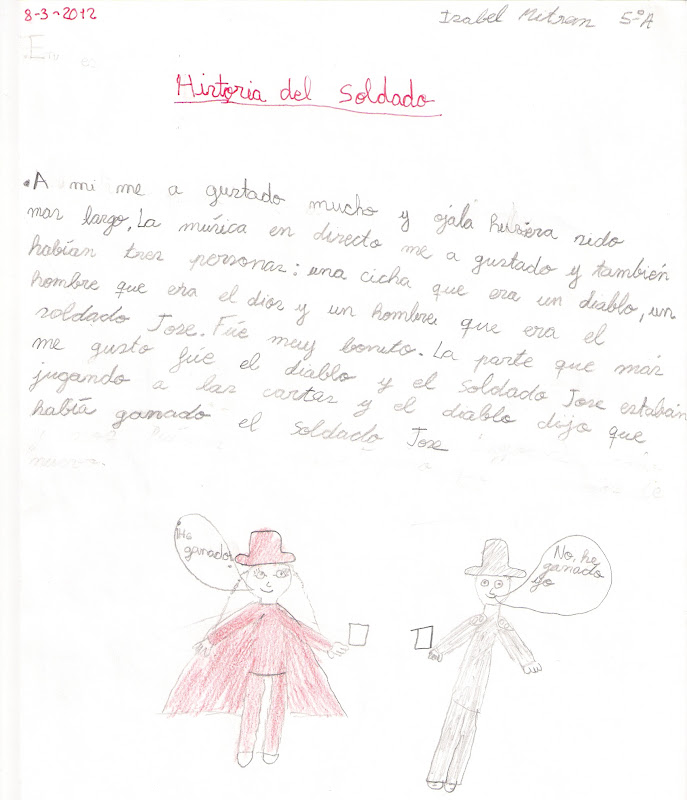 8-3-2012
Izabel Mitran 5ºA
En es
Historia del Soldado
.A mi me a gustado mucho y ojalá hubiera sido
mas largo. La música en directo me a gustado y también
habían tres personas: una cicha que era un diablo, un
hombre que era el dios y un hombre que era el
soldado Jose. Fúe muy bonito. La parte que más
me gusto fúe el diablo y el soldado Jose estaban
jugando a las cartas y el diablo dijo que
había ganado el soldado Jose
He
ganado.
No, he
ganado
yo